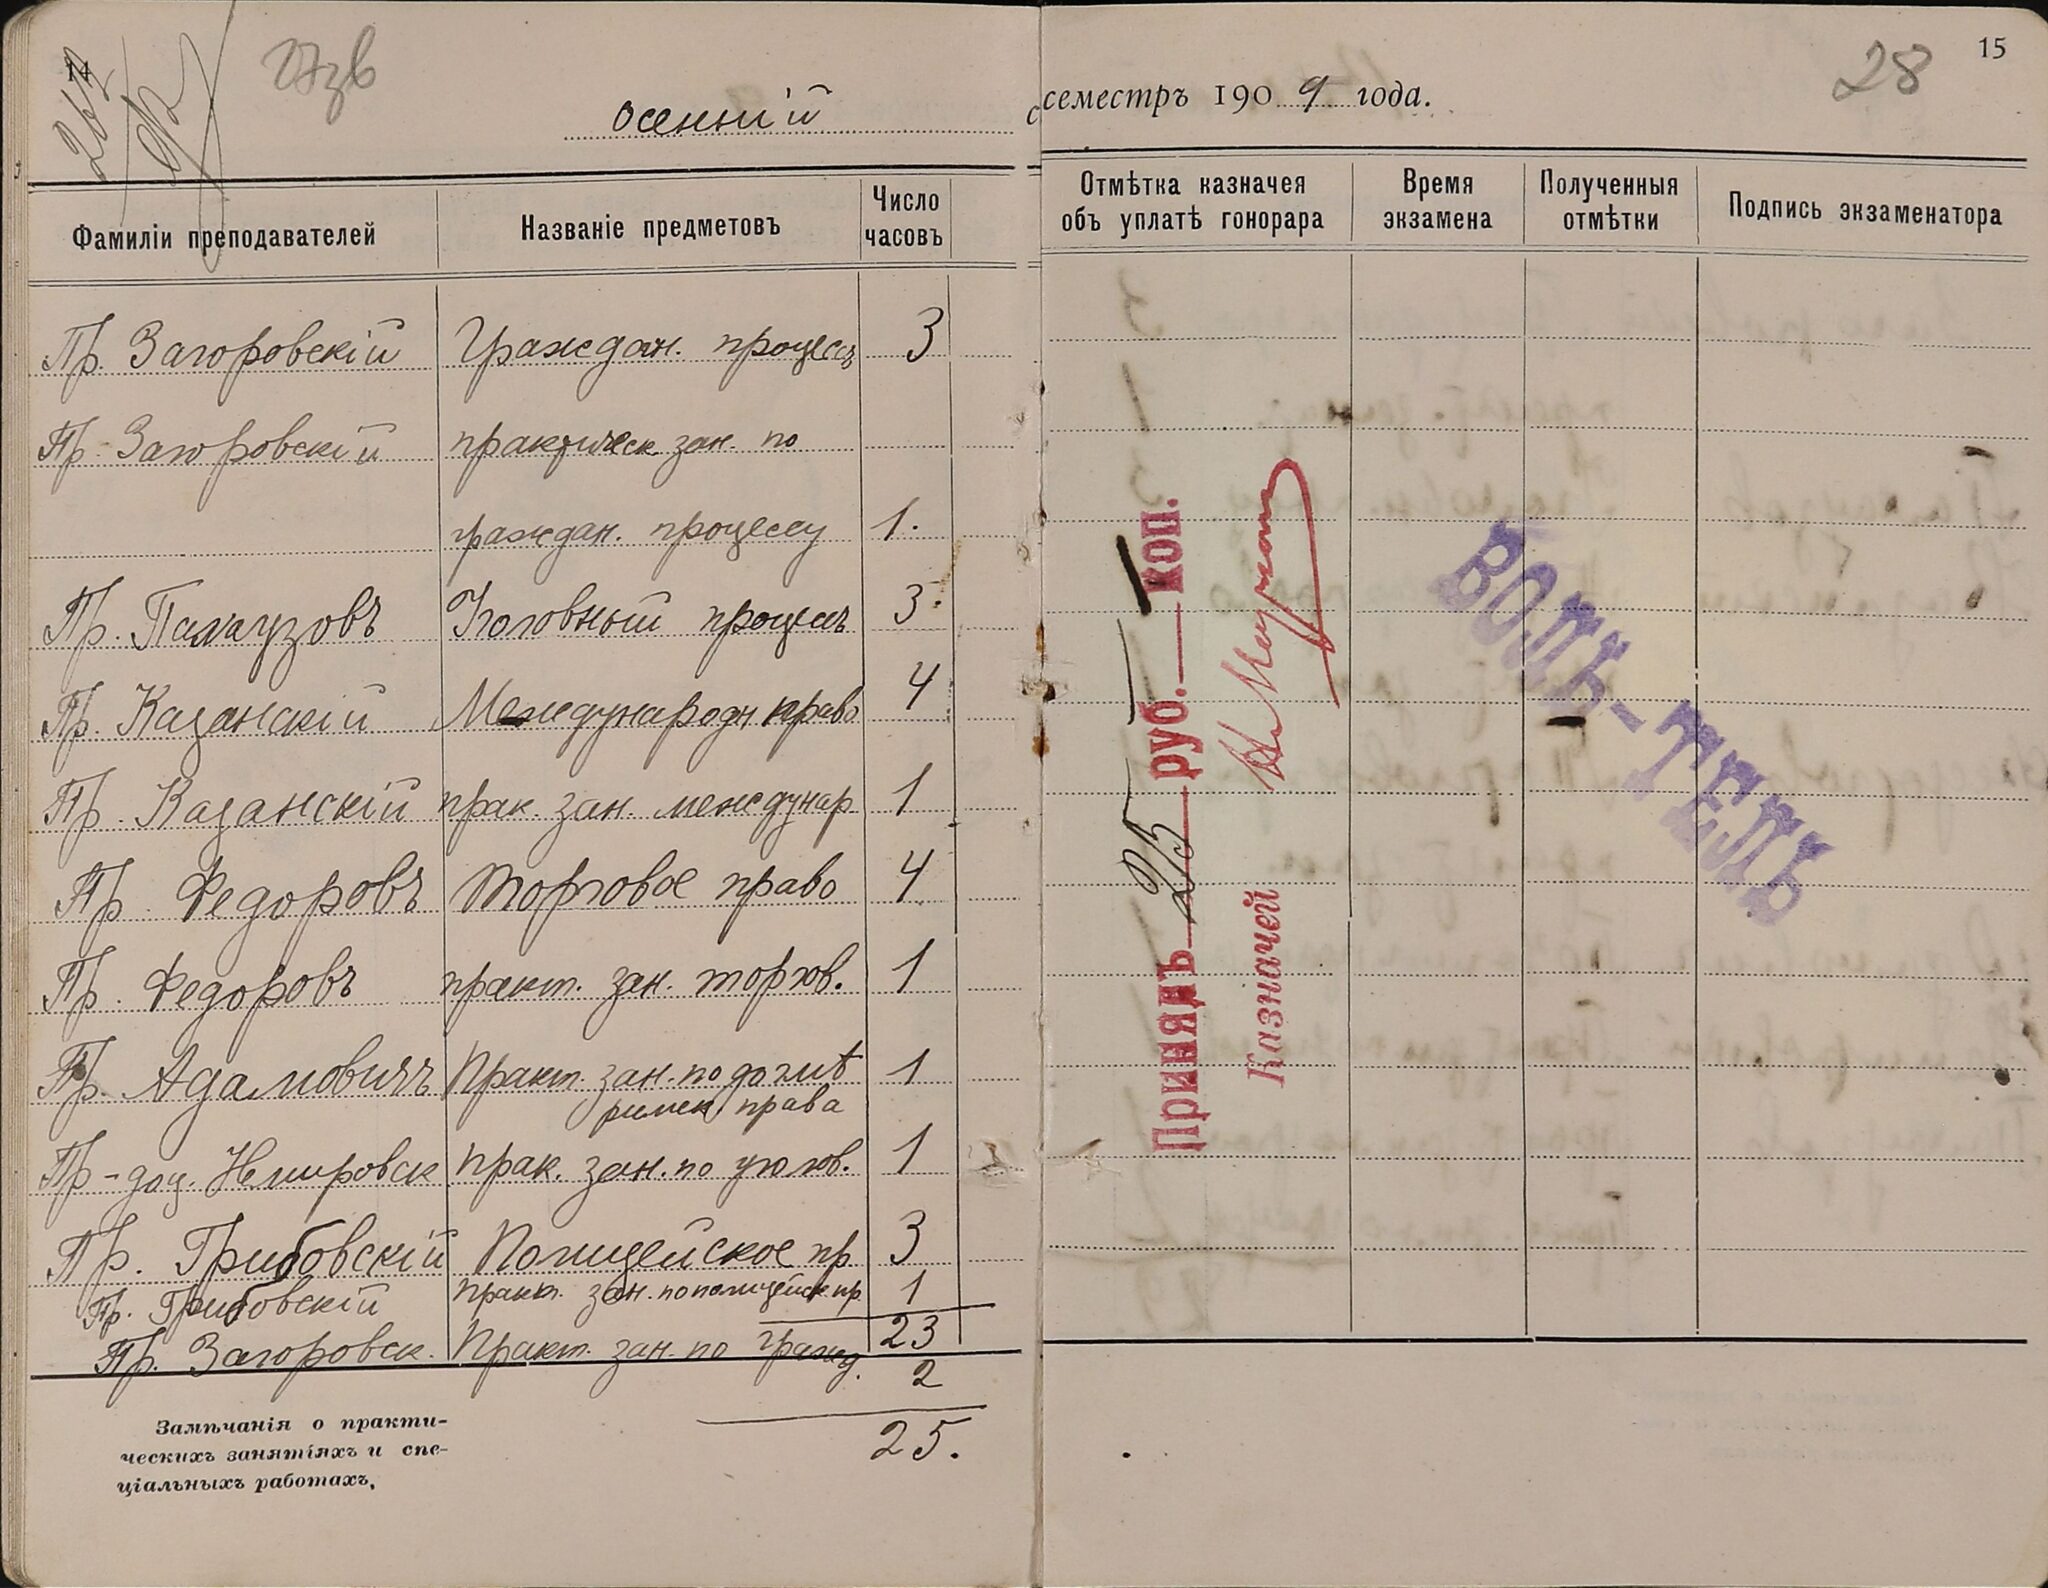 14
27зв
28
15
осенній семестръ 1909 года.
Фамиліи преподавателей Названіе предметовъ Число часовъ
Отмѣтка казначея объ уплатѣ гонорара Время экзамена Полученныя отмѣтки Подпись экзаменатора
Пр. Загоровскій Граждан. процессъ 3
Пр. Загоровскій практическ. зан. по
граждан. процессу 1.
Пр. Палаузовъ Уголовный процессъ 3.
Пр. Казанскій Международн право 4
Пр. Казанскій прак. зан. междунар 1
Пр. Федоровъ Торговое право 4
Пр. Федоровъ практ. зан. торгов. 1
Пр. Адамовичъ Практ. зан. по догмѣ 1
римск. права
Пр-доц. Немировск прак. зан. по уголов. 1
Пр. Грибовскій Полицейское пр 3
Пр. Грибовскій Практ. зан. по полицейск. пр. 1
23
Пр. Загоровск. Практ. зан. по гражд. 2
25.
Замѣчанія о практи-
ческихъ занятіяхъ и спе-
ціальныхъ работахъ.
Принялъ 25 руб. — коп.
Казначей
ВОЛЬ-ТЕЛЬ